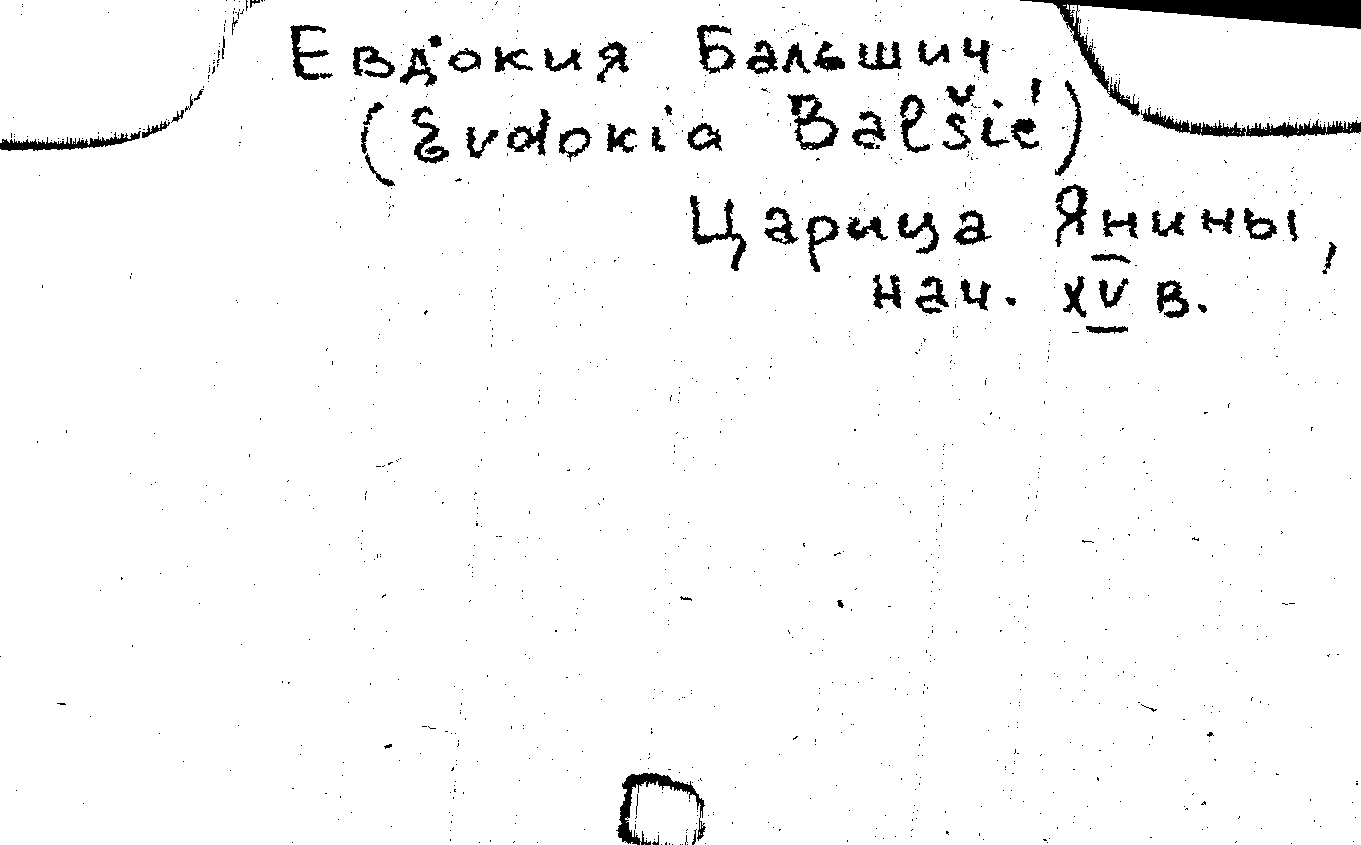 Евдокия Бальшич
(Evdokia Balšić)
Царица Янины,
нач. XV в.